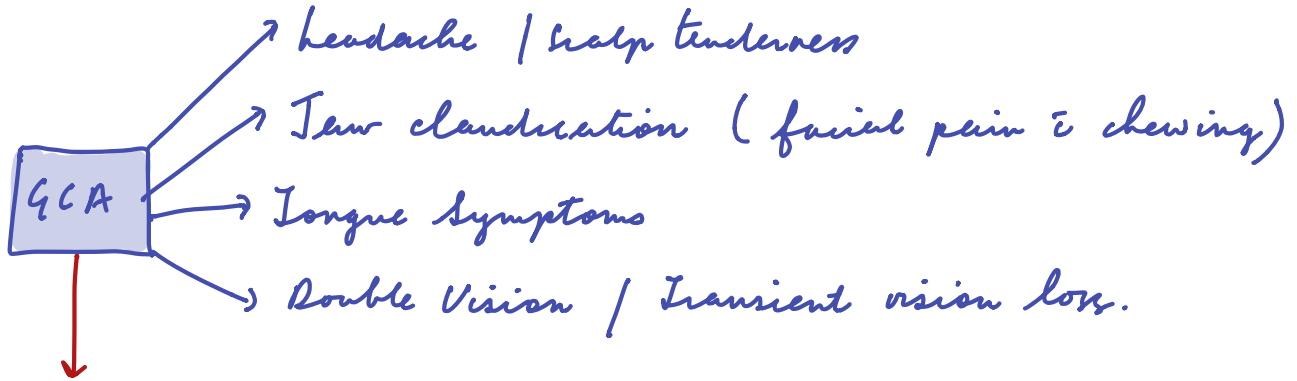 headache / Scalp tenderness
Jaw claudication (facial pain c̄ chewing)
GCA
Tongue Symptoms
Double Vision / Transient vision loss.